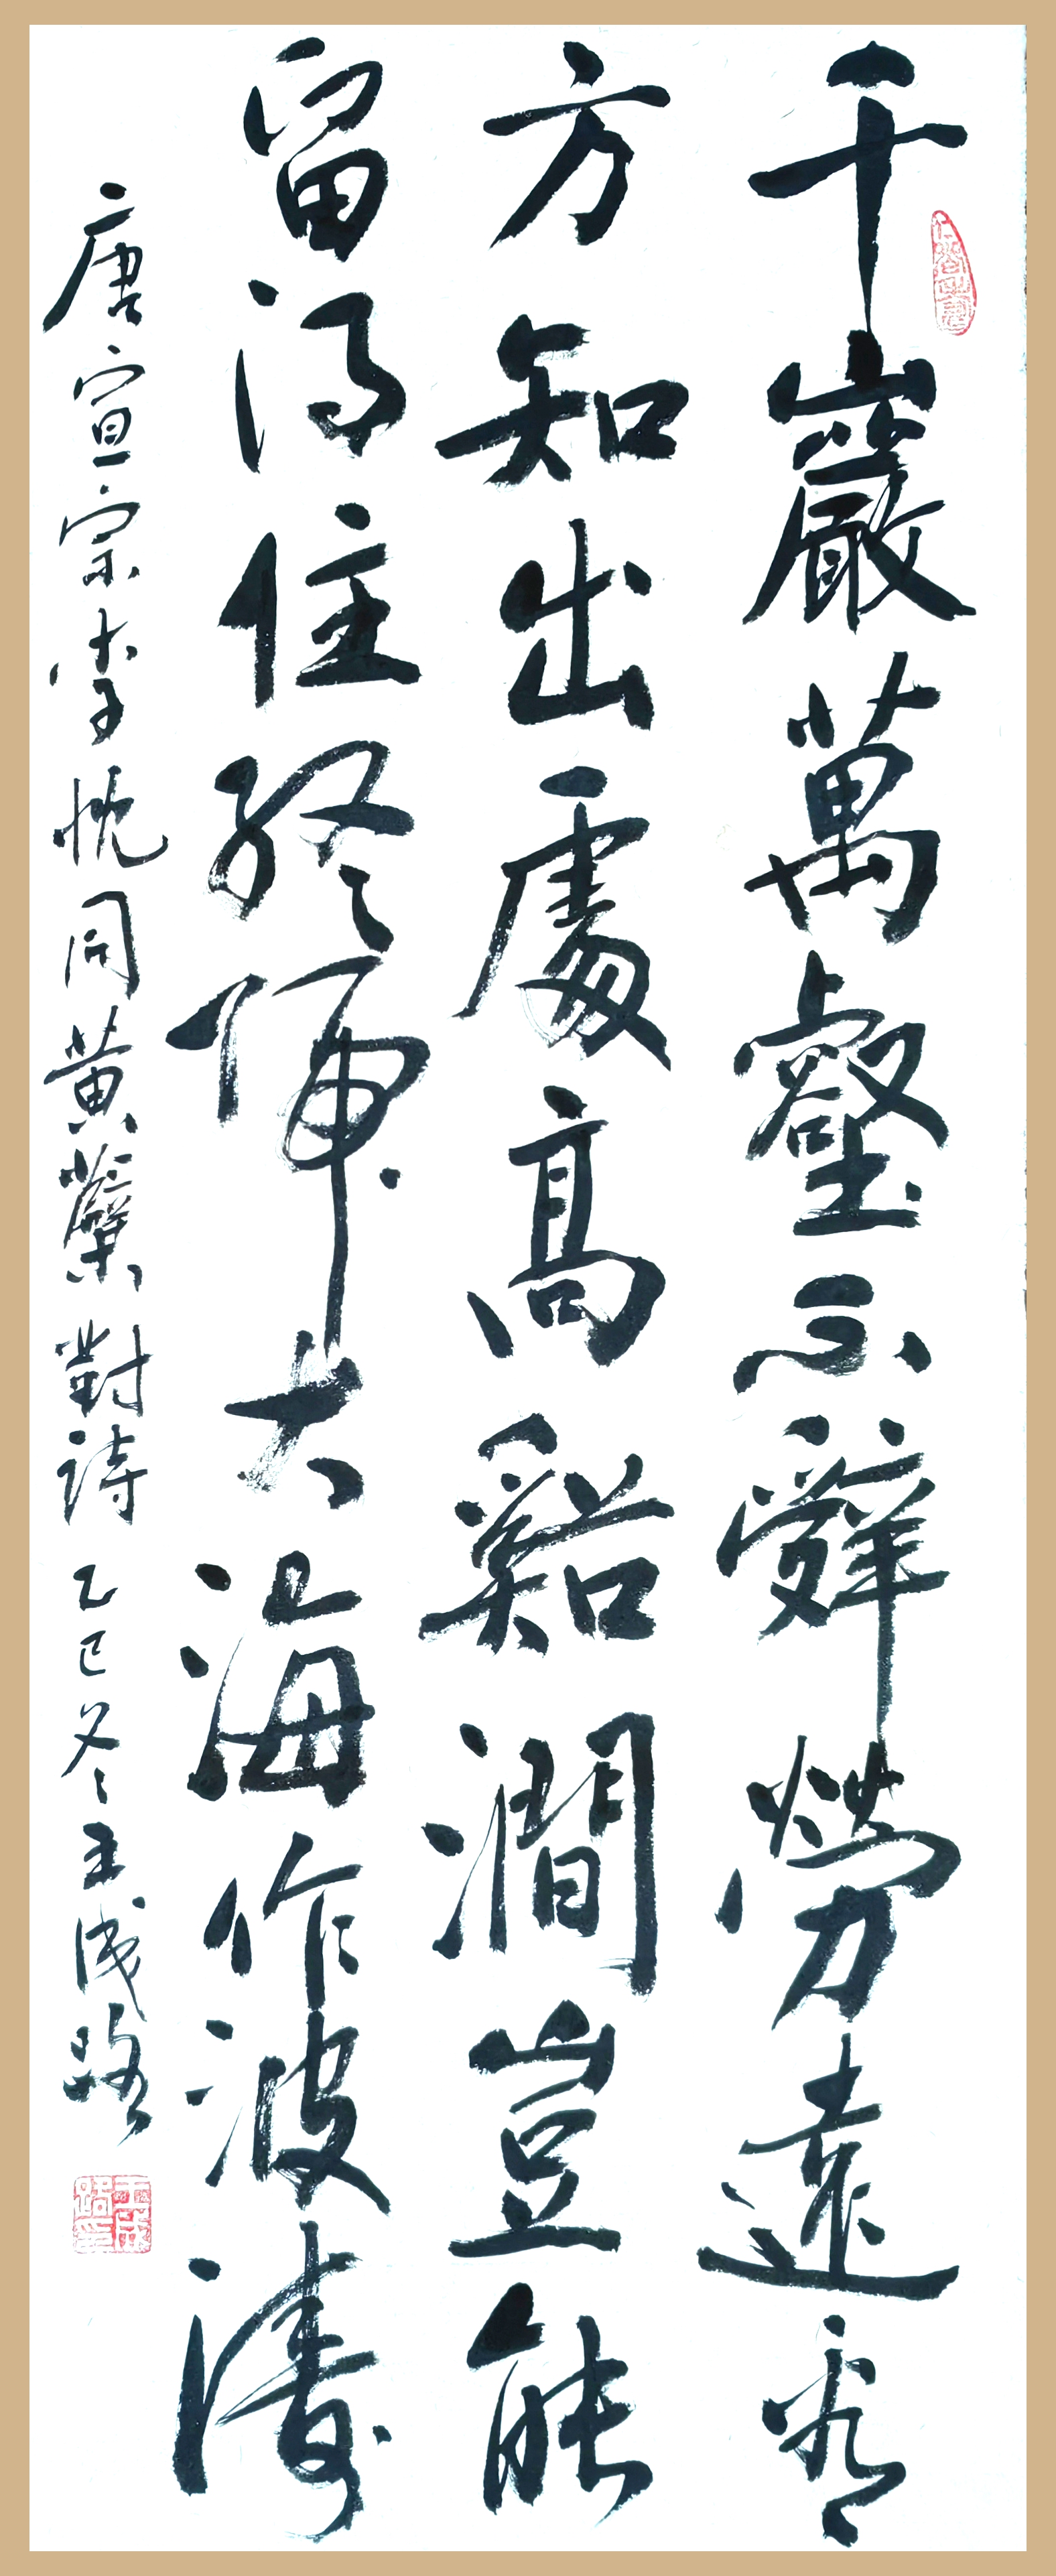 千巖萬壑不辭勞遠看
方知出處高谿澗豈能
留得住終歸大海作波濤
唐宣宗李忱同黄蘗對詩 乙巳冬 王路